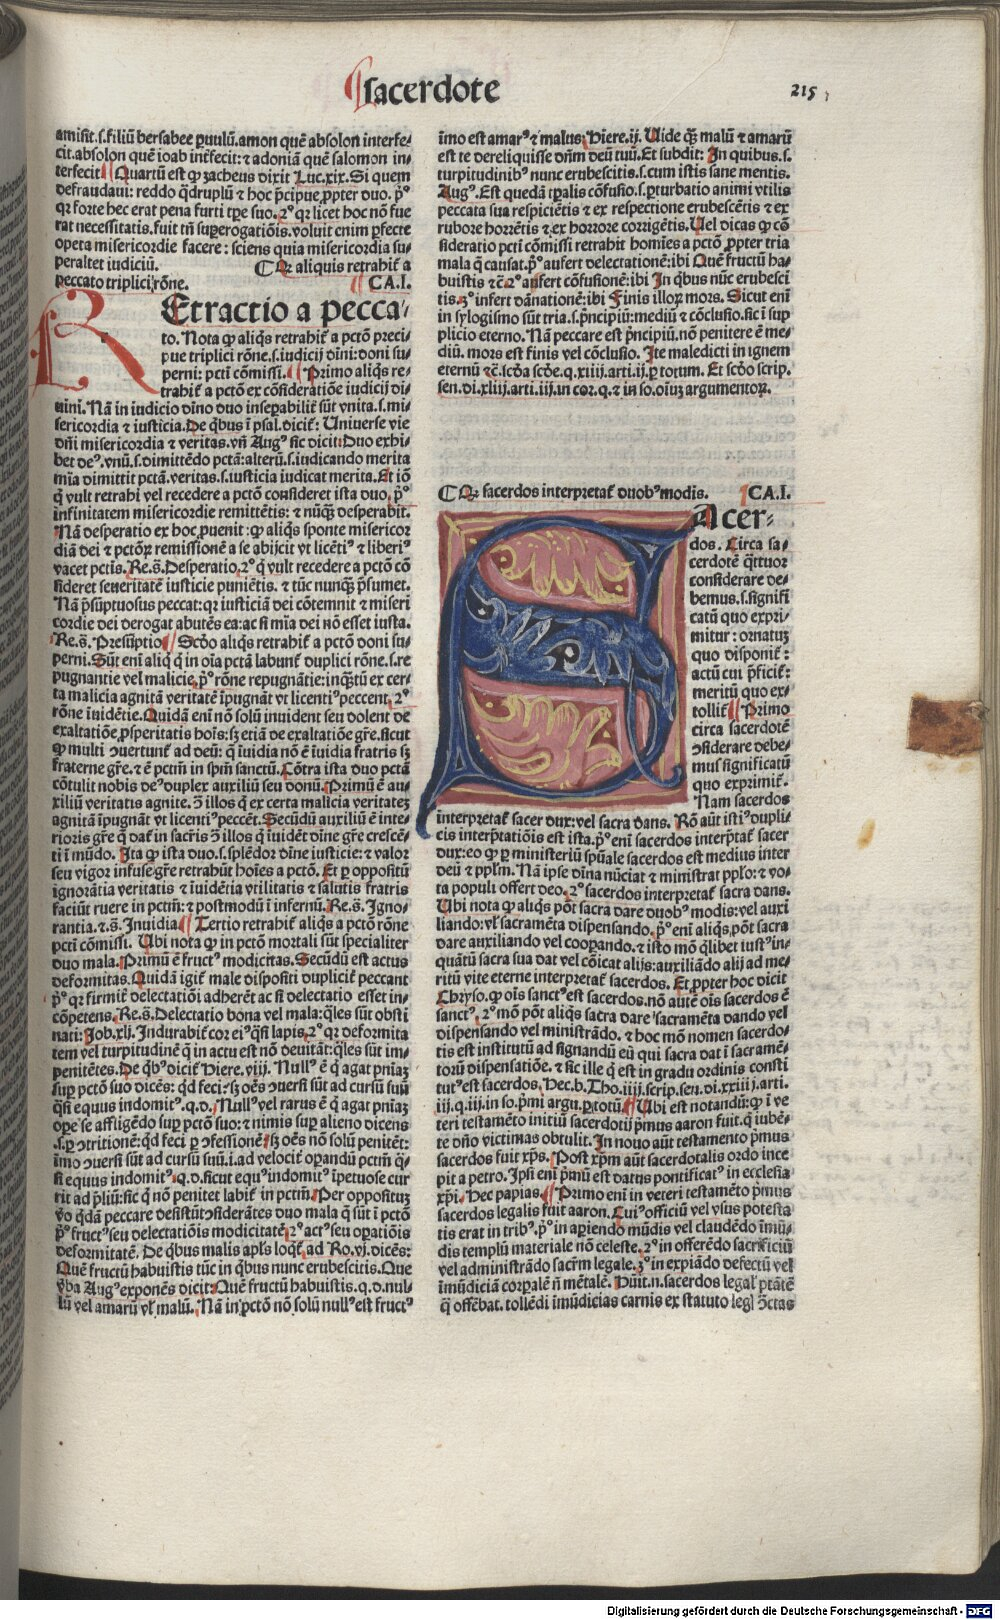 sacerdote
215
amisit.s.filiū bersabee ꝑuulū.amon quē absolon interfe⸗
cit.absolon quē ioab int̄fecit: ⁊ adoniā quē salomon in⸗
terfecit Quartū est ꝙ zacheus dixit Luc.xix. Si quem
defraudaui: reddo q̄druplū ⁊ hoc p̄cipue ꝓpter duo. pº
qꝛ forte hec erat pena furti tꝑe suo. 2º qꝛ licet hoc nō fue
rat necessitatis.fuit tn̄ suꝑerogatiōis.voluit enim ꝑfecte
opera misericordie facere: sciens quia misericordia su⸗
peraltet iudiciū. ¶ Qꝛ aliquis retrahit̄ a
peccato triplici rōne. CA.I.
REtractio a pecca⸗
to. Nota ꝙ aliq̄s retrahit̄ a pctō preci
pue triplici rōne.s.iudicij diui: doni su⸗
perni: pcti cōmissi. Primo aliq̄s re⸗
trahit̄ a pctō ex cōsideratiōe iudicij di⸗
uini. Nā in iudicio diuo duo insepabilit̄ sūt vnita.s.mi⸗
sericordia ⁊ iusticia. De q̄bus i psal. dicit̄: Uniuerse vie
dn̄i misericordia ⁊ veritas. vn̄ Augꝰ sic dicit: Duo exhi⸗
bet deꝰ. vnū.s.dimittēdo pctā: alterū.s.iudicando merita
mīa dimittit pctā. veritas.s.iusticia iudicat merita. Et iō
q̄ vult retrahi vel recedere a pctō consideret ista duo. pº
infinitatem misericordie remittētis: ⁊ nūq̄ desperabit.
Nā desperatio ex hoc ꝓuenit: ꝙ aliq̄s sponte misericor
diā dei ⁊ pctōꝝ remissionē a se abijcit vt licētiꝰ ⁊ liberiꝰ
vacet pctis. Re.s. Desperatio. 2º q̄ vult recedere a pctō cō
sideret seueritatē iusticie puniētis. ⁊ tūc nunq̄ p̄sumet.
Nā p̄sūptuosus peccat: qꝛ iusticiā dei cōtemnit ⁊ miseri
cordie dei derogat abutēs ea: ac si mīa dei nō esset iusta.
Re.s. Presūptio Scdo aliq̄s retrahit̄ a pctō doni su⸗
perni. Sūt eni aliq̄ q̄ in oīa pctā labunt̄ duplici rōne.s.re
pugnantie vel malicie. pº rōne repugnātie: inq̄tū ex cer⸗
ta malicia agnitā veritatē īpugnāt vt licentiꝰ peccent. 2º
rōne inuidētie. Quidā eni nō solū inuident seu dolent de
exaltatiōe ꝓsperitatis hoīs: sꝫ etiā de exaltatiōe gr̄e. sicut
ꝙ multi ꝯuertunt̄ ad deū: q̄ īuidia nō ē īuidia fratris sꝫ
fraterne gr̄e. ⁊ ē pctm̄ in spm̄ sanctū. Cōtra ista duo pctā
cōtulit nobis deꝰ duplex auxiliū seu donū. Primū ē au⸗
xiliū veritatis agnite. ꝯ illos q̄ ex certa malicia veritatez
agnitā īpugnāt vt licentiꝰ peccēt. Secūdū auxiliū ē inte⸗
rioris gr̄e q̄ dat̄ in sacr̄is ꝯ illos q̄ īuidēt diuīe gr̄e crescē⸗
ti ī mūdo. Ita ꝙ ista duo.s.splēdor diuīe iusticie: ⁊ valor
seu vigor infuse gr̄e retrahūt hoīes a pctō. Et ꝑ oppositū
ignorātia veritatis ⁊ īuidētia vtilitatis ⁊ salutis fratris
faciūt ruere in pctm̄: ⁊ postmodū ī infernū. Re.s. Igno⸗
rantia. ⁊.s. Inuidia Tertio retrahit̄ aliq̄s a pctō rōne
pcti cōmissi. Ubi nota ꝙ in pctō mortali sūt specialiter
duo mala. Primū ē fructꝰ modicitas. Secūdū est actus
deformitas. Quidā igit̄ male dispositi duplicit̄ peccant
pº qꝛ firmit̄ delectatiōi adherēt ac si delectatio esset in⸗
cōpetens. Re.s. Delectatio bona vel mala: q̄les sūt obsti
nati: Job.xlj. Indurabit̄ cor eiꝰ q̄si lapis. 2º qꝛ deformita
tem vel turpitudinē q̄ in actu est nō deuitāt: q̄les sūt im⸗
penitētes. De q̄bꝰ dicit̄ Hiere.viij. Nullꝰ ē q̄ agat pn̄iaz
suꝑ pctō suo dicēs: qd feci: sꝫ oēs ꝯuersi sūt ad cursū suū
q̄si equus indomitꝰ.q.d. Nullꝰ vel rarus ē q̄ agat pn̄iaz
oꝑe se affligēdo suꝑ pctō suo: ⁊ nimis suꝑ alieno dicens
.s.ꝑ ꝯtritionē: qd feci ꝑ ꝯfessionē sꝫ oēs nō solū penitēt:
īmo ꝯuersi sūt ad cursū suū.i.ad velocit̄ oꝑandū pctm̄ q̄⸗
si equus indomitꝰ. q.d. sicut equꝰ indomitꝰ īpetuose cur
rit ad p̄liū: sic q̄ nō penitet labit̄ in pctm̄. Per oppositum
v̄o q̄dā peccare desistūt ꝯsiderātes duo mala q̄ sūt ī pctō
pº fructꝰ seu delectatiōis modicitatē 2º actꝰ seu oꝑatiōis
deformitatē. De q̄bus malis apl̄s loqt̄ ad Ro.vj. dicēs:
Quē fructū habuistis tūc in q̄bus nunc erubescitis. Que
v̄ba Augꝰ exponēs dicit: Quē fructū habuistis. q.d. nul⸗
lū vel amarū vl̄ malū. Nā in pctō nō solū nullꝰ est fructꝰ
īmo est amarꝰ ⁊ malus Hiere.ij. Uide qꝫ malū ⁊ amarū
est te dereliquisse dn̄m deū tuū. Et subdit: In quibus.s.
turpitudinibꝰ nunc erubescitis.s.cum istis sane mentis.
Augꝰ. Est quedā tꝑalis cōfusio.s.ꝑturbatio animi vtilis
peccata sua respiciētis ⁊ ex respectione erubescētis ⁊ ex
rubore horrētis ⁊ ex horrore corrigētis. Uel dicas ꝙ cō
sideratio pcti cōmissi retrahit homīes a pctō ꝓpter tria
mala q̄ causat. pº aufert delectationē: ibi Quē fructū ha⸗
buistis ⁊c̄. 2º aufert cōfusionē: ibi In q̄bus nūc erubesci
tis. 3º infert dānationē: ibi Finis illoꝝ mors. Sicut eni
in sylogismo sūt tria.s.p̄ncipiū: mediū ⁊ cōclusio. sic ī sup
plicio eterno. Nā peccare est p̄ncipiū. nō penitere ē me⸗
diū. mors est finis vel cōclusio. Ite maledicti in ignem
eternū ⁊c̄. scd̄a scd̄e.q.xiiij.arti.ij.ꝑ totum. Et scd̄o scrip.
sen.di.xliij.arti.iij.in cor.q.⁊ in so.oiuꝫ argumentoꝝ.
¶ Qꝛ sacerdos interpretat̄ duobꝰ modis. CA.I.
SAcer⸗
dos. Circa sa⸗
cerdotē q̄ttuor
considerare de⸗
bemus.s.signifi
catū quo expri⸗
mitur: ornatuz
quo disponit̄:
actū cui p̄ficit̄:
meritū quo ex⸗
tollit̄ Primo
circa sacerdotē
ꝯsiderare debe⸗
mus significatū
quo exprimit̄.
Nam sacerdos
interpretat̄ sacer dux: vel sacra dans. Rō aūt istiꝰ dupli⸗
cis interp̄tatiōis est ista. pº eni sacerdos interp̄tat̄ sacer
dux: eo ꝙ ꝑ ministeriū spūale sacerdos est medius inter
deū ⁊ ppl̄m. Nā ipse diuīa nūciat ⁊ ministrat ppl̄o: ⁊ vo⸗
ta populi offert deo. 2º sacerdos interpretat̄ sacra dans.
Ubi nota ꝙ aliq̄s pōt sacra dare duobꝰ modis: vel auxi
liando: vl̄ sacramēta dispensando. pº eni aliq̄s pōt sacra
dare auxiliando vel cooꝑando. ⁊ isto mō q̄libet iustꝰ in⸗
quātū sacra sua dat vel cōicat alijs: auxiliādo alij ad me⸗
ritū vite eterne interpretat̄ sacerdos. Et ꝓpter hoc dicit
Chryso. ꝙ oīs sanctꝰ est sacerdos. nō autē oīs sacerdos ē
sanctꝰ. 2º mō pōt aliq̄s sacra dare sacramēta dando vel
dispensando vel ministrādo. ⁊ hoc mō nomen sacerdo⸗
tis est institutū ad signandū eū qui sacra dat ī sacramē⸗
torū dispensatiōe. ⁊ sic ille q̄ est in gradu ordinis consti
tutꝰ est sacerdos. Hec.b.Tho.iiij.scrip.sen.di.xxiiij.arti.
iij.q.iij.in so.p̄mi argu.ꝑ totū Ubi est notandū: ꝙ ī ve
teri testamēto initiū sacerdotij p̄mus aaron fuit. q̄ iubē⸗
te dn̄o victimas obtulit. In nouo aūt testamento p̄mus
sacerdos fuit xp̄s. Post xp̄m aūt sacerdotalis ordo ince
pit a petro. Ipsi eni p̄mū est datus pontificatꝰ in ecclesia
xp̄i. Hec papias. Primo eni in veteri testamēto p̄mus
sacerdos legalis fuit aaron. Cuiꝰ officiū vel vsus potesta
tis erat in tribꝰ. pº in aꝑiendo mūdis vel claudēdo īmū⸗
dis templū materiale nō celeste. 2º in offerēdo sacrificiū
vel administrādo sacr̄m legale. 3º in expiādo defectū vel
īmūdiciā corꝑalē n̄ mētalē. Huit.n.sacerdos legal̓ ptātē
q̄ offēbat. tollēdi īmūdicias carnis ex statuto legl̓ ꝯtctas
Digitalisierung gefördert durch die Deutsche Forschungsgemeinschaft - DFG